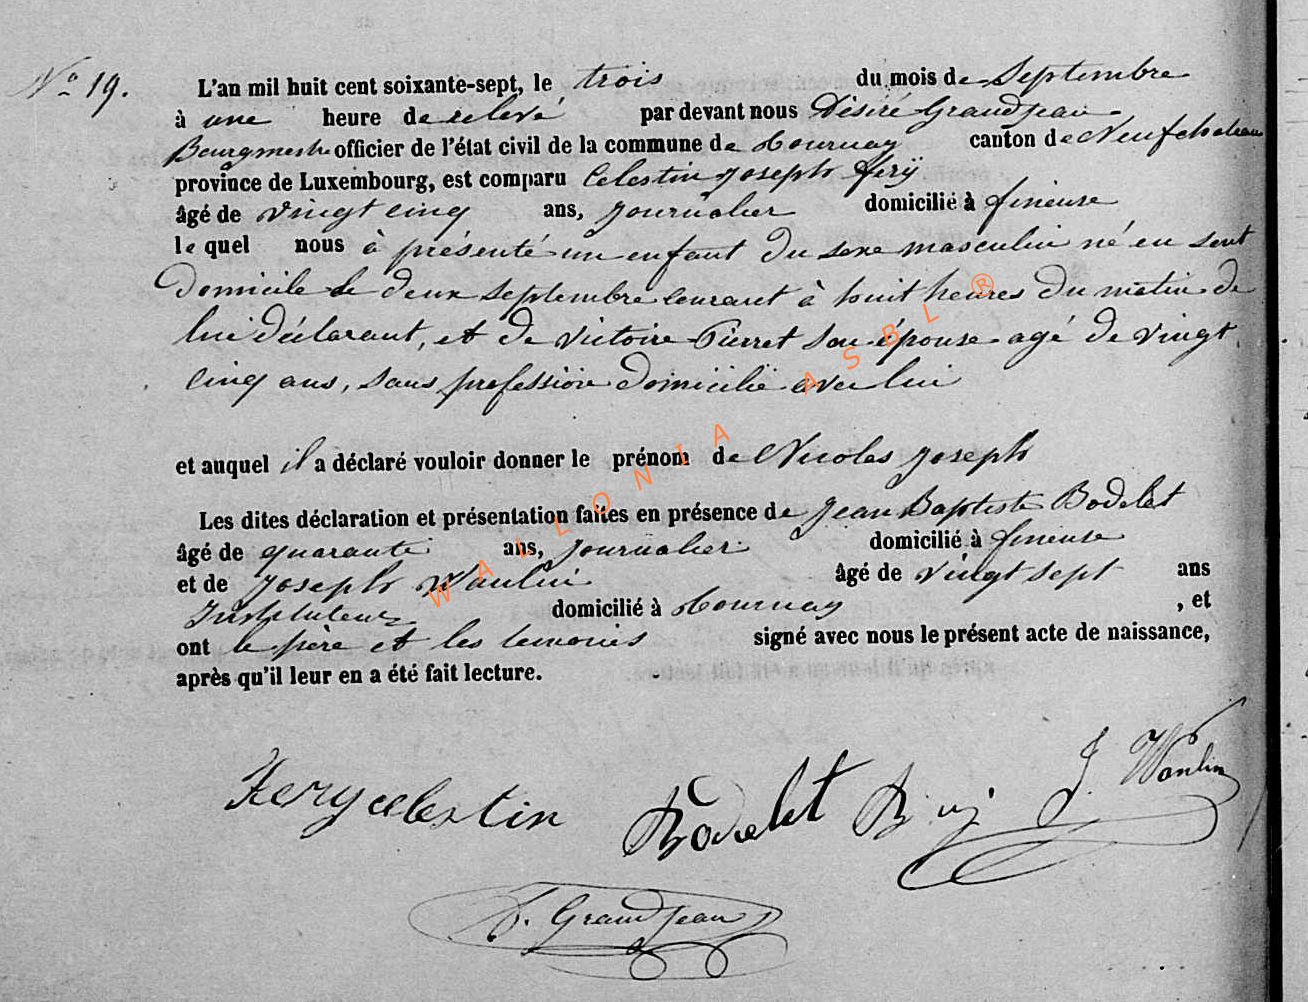 N° 19.
L'an mil huit cent soixante-sept, le trois du mois de Septembre
à une heure de relevé par devant nous Désiré Grandjean
Bourgmestre officier de l'état civil de la commune de Tournay canton de Neufchateau
province de Luxembourg, est comparu Celestin Joseph fery
âgé de vingt cinq ans, journalier domicilié à fineuse
le quel nous à présenté un enfant du sexe masculin né en sont
domicile le deux Septembre courant à huit heures du matin de
lui déclarant, et de victoire Pierret son épouse agé de vingt
cinq ans, sans profession domicilié avec lui
et auquel il a déclaré vouloir donner le prénom de Nicolas Joseph
Les dites déclaration et présentation faites en présence de Jean Baptiste Bodelet
âgé de quarante ans, journalier domicilié à fineuse
et de Joseph Waulin âgé de vingt sept ans
Instituteur domicilié à Tournay , et
ont le père et les temoins signé avec nous le présent acte de naissance,
après qu'il leur en a été fait lecture.
Fery celestin Bodelet J. Waulin
D. Grandjean
WALLONIA ASBL ®